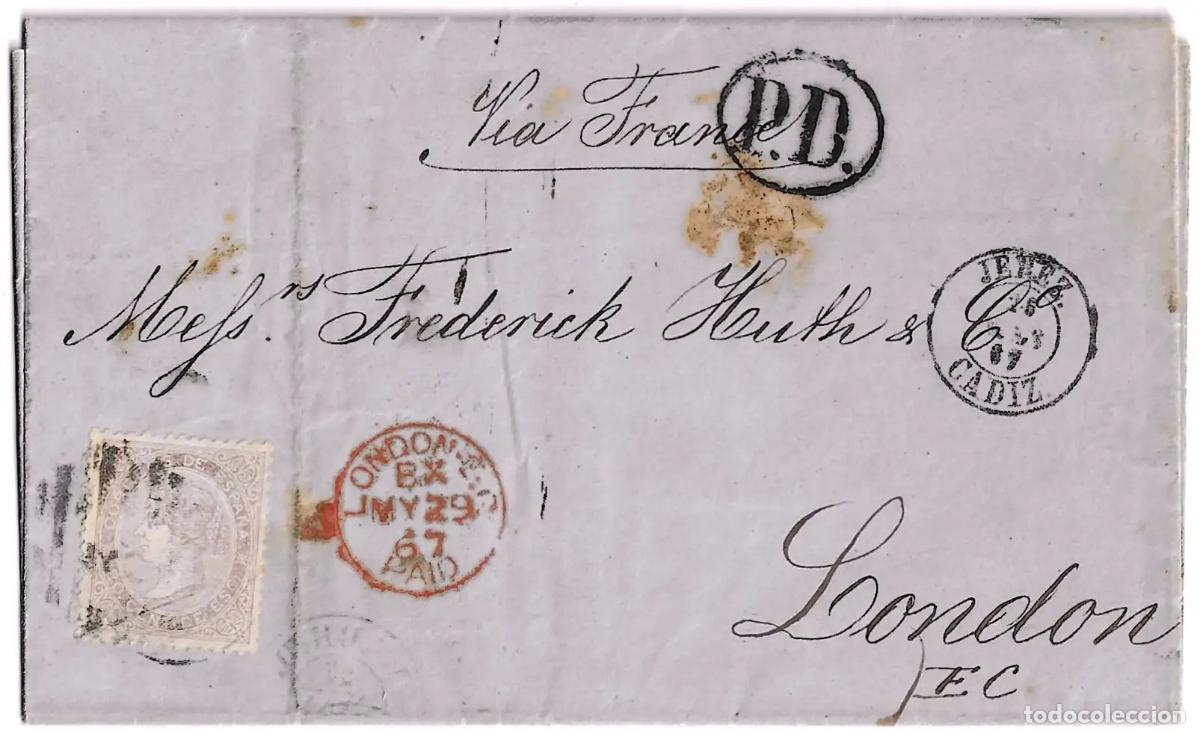 Via France
P.D.
Mess.rs Frederick Huth & Co
JEREZ.
67
CADIZ.
CORREOS DE ESPAÑA
LONDON-E.C
BX
MY 29
67
PAID
London
EC
todocoleccion